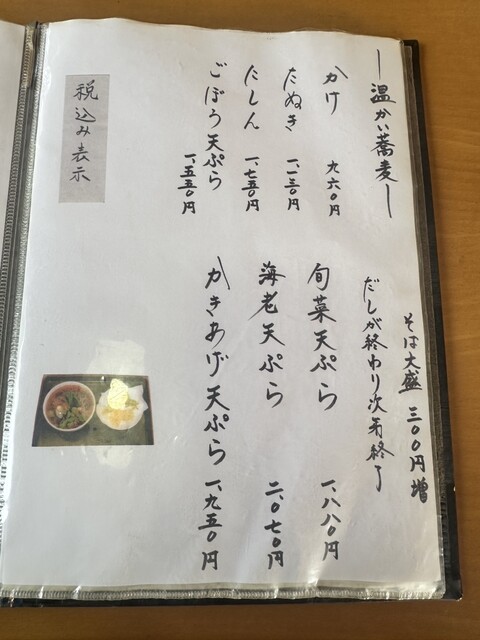 ―温かい蕎麦―
かけ 九六〇円
たぬき 一、一三〇円
にしん 一、七五〇円
ごぼう天ぷら 一、五五〇円
税込み表示
そば大盛 三〇〇円増
だしが終わり次第終了
旬菜天ぷら 一、八八〇円
海老天ぷら 二、〇七〇円
かきあげ天ぷら 一、九五〇円